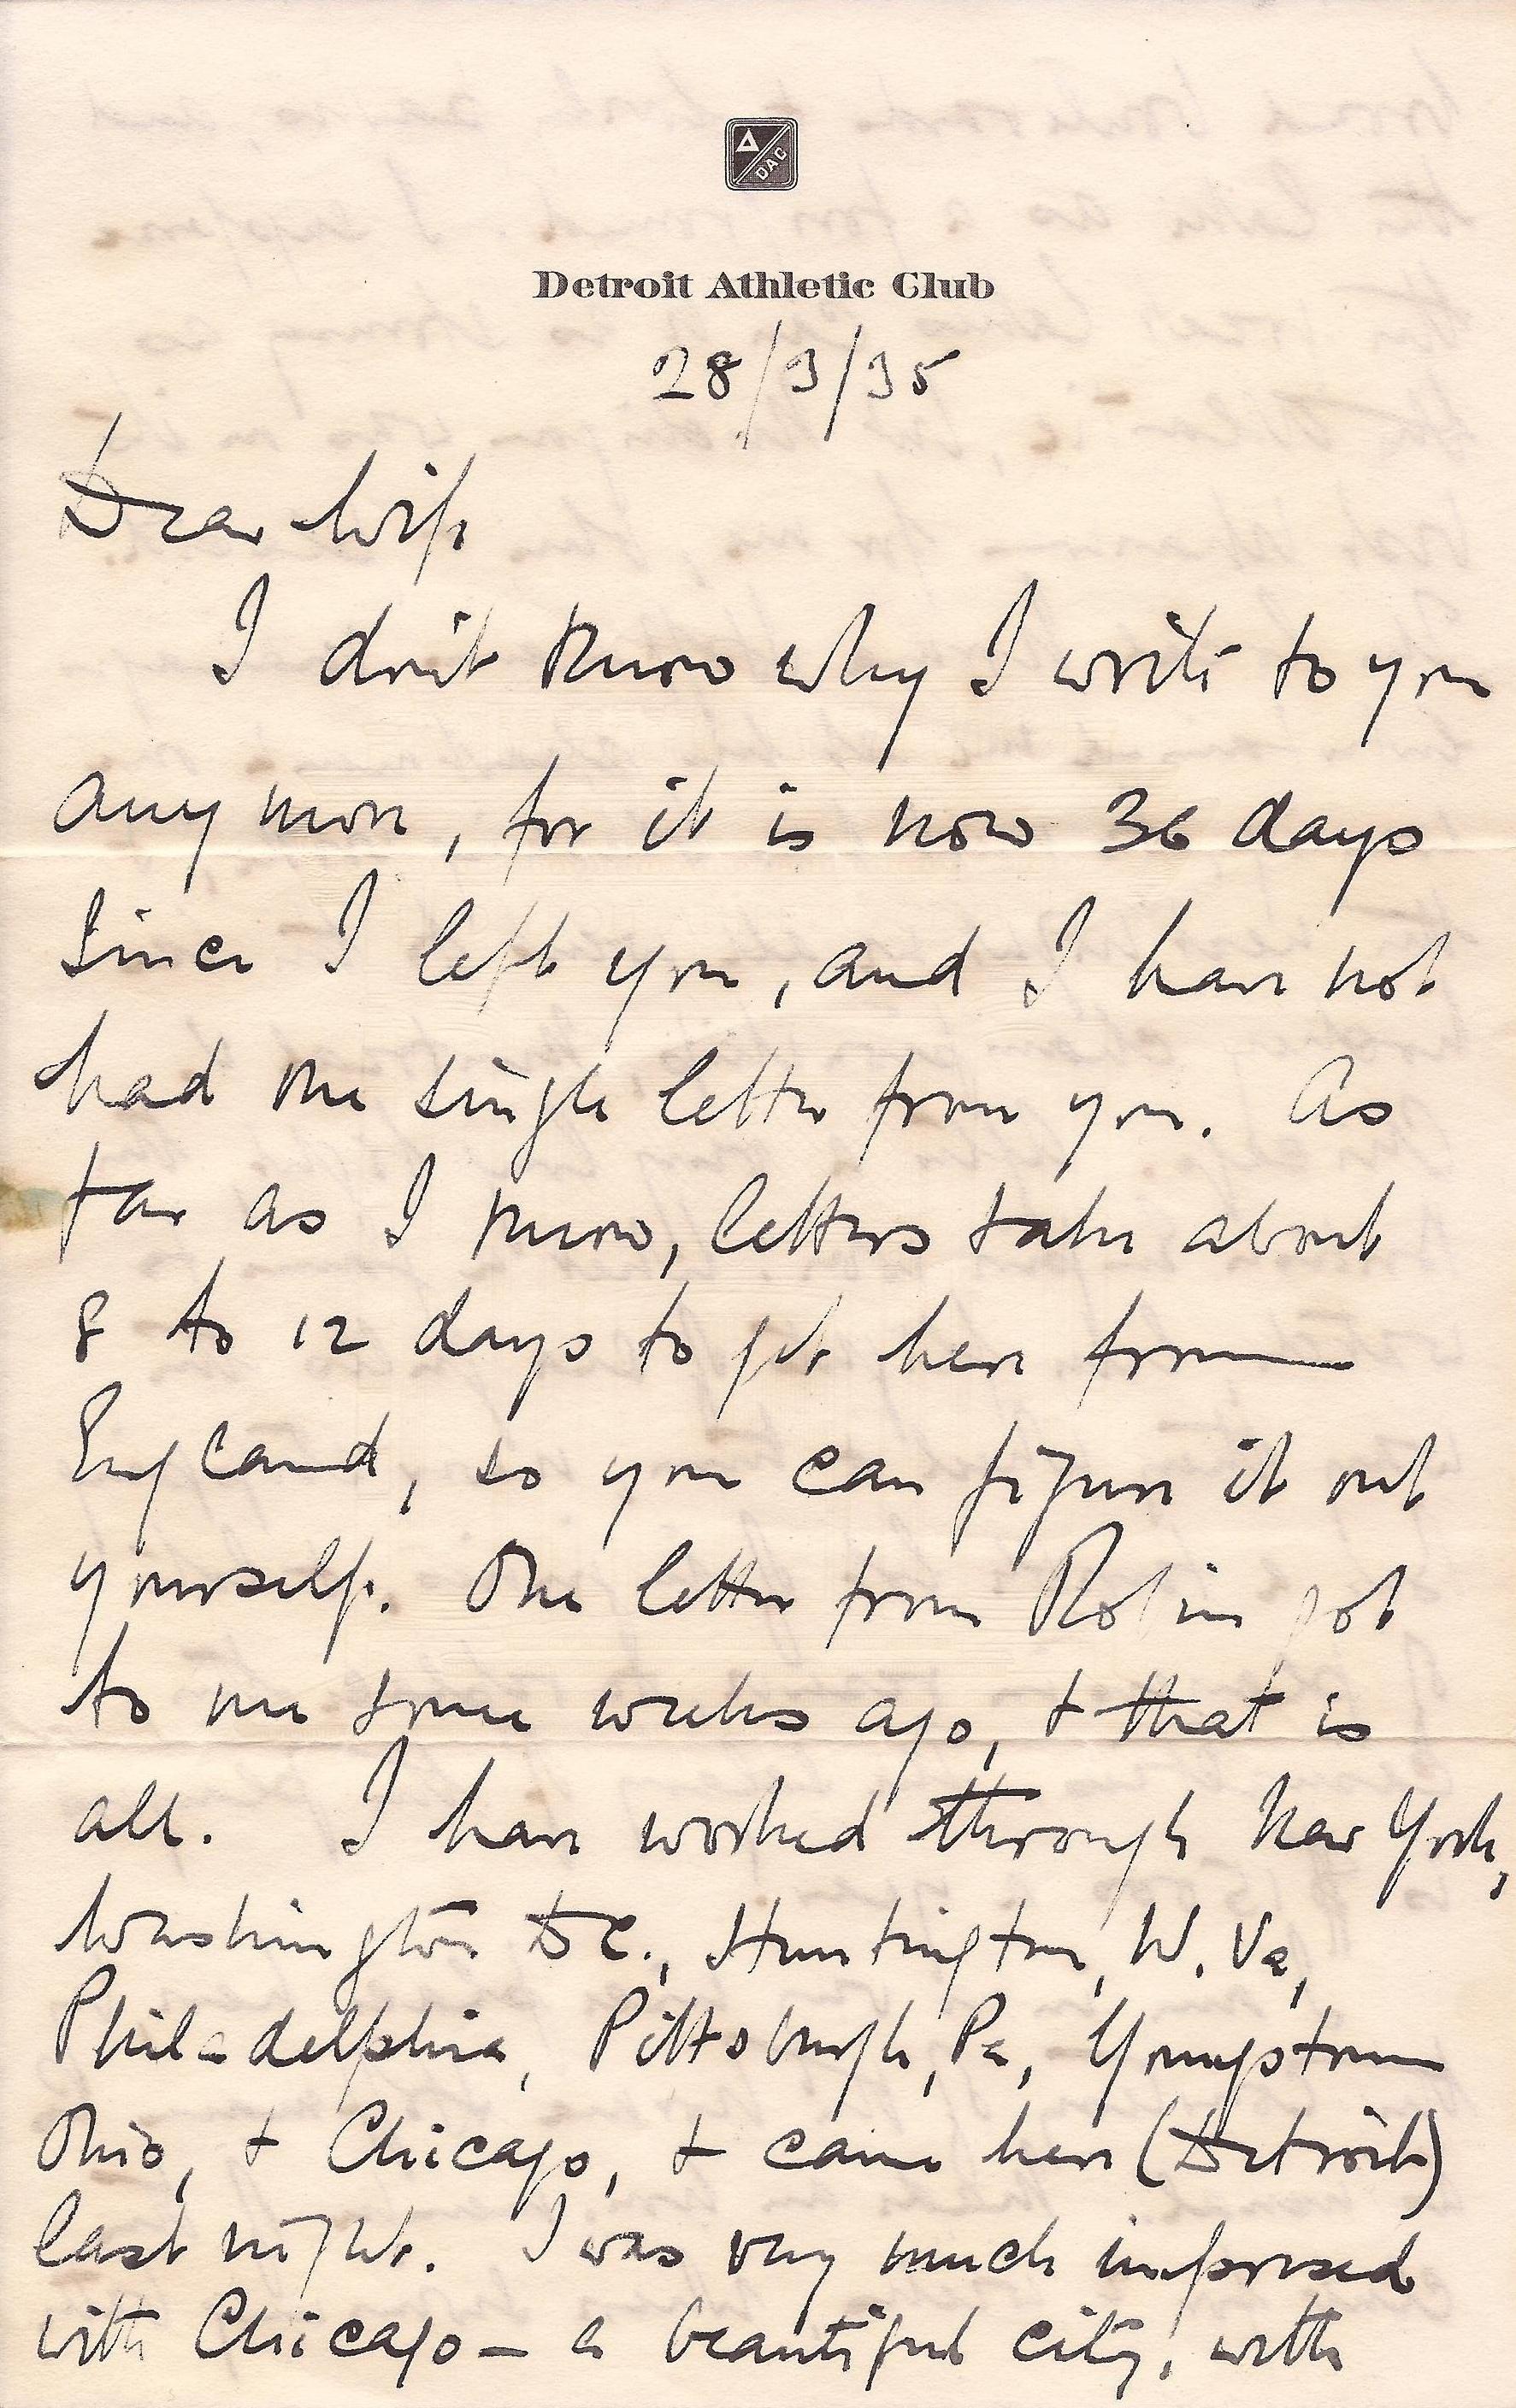 DAC
Detroit Athletic Club
28/3/35
Dear Wife
I don't know why I write to you
any more, for it is now 36 days
since I left you, and I have not
had one single letter from you. As
far as I know, letters take about
8 to 12 days to get here from
England, so you can figure it out
yourself. One letter from Robin got
to me some weeks ago, + that is
all. I have worked through New York,
Washington DC., Huntington, W. Va,
Philadelphia, Pittsburgh, Pa, Youngstown
Ohio, + Chicago, + came here (Detroit)
last night. I was very much impressed
with Chicago – a beautiful city, with